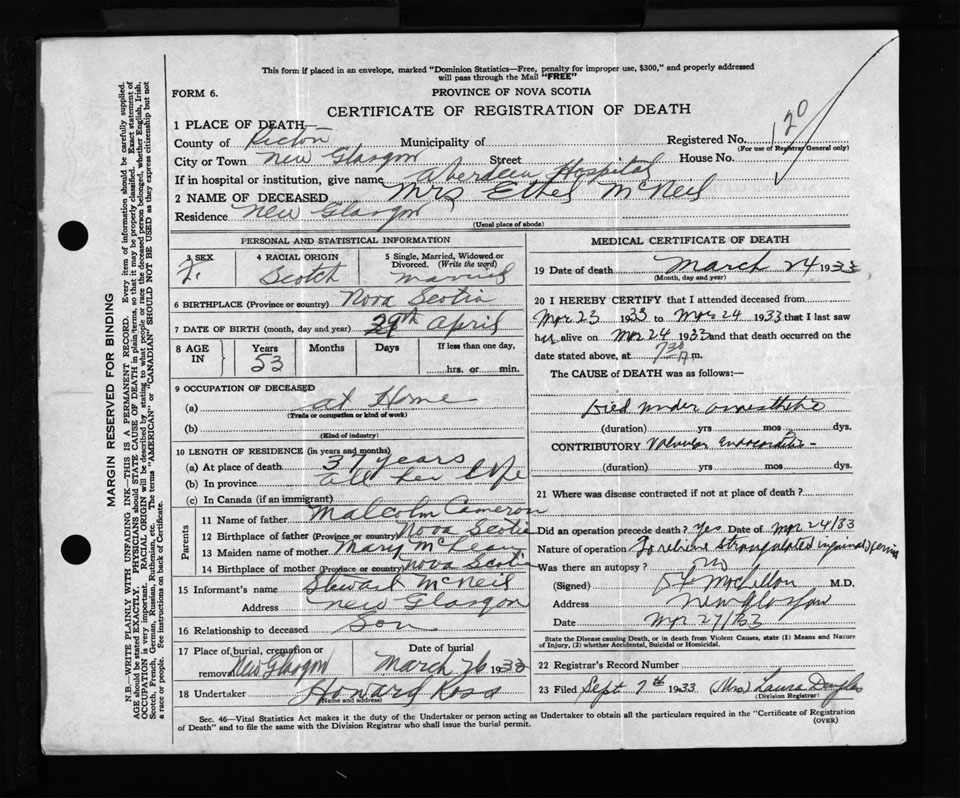 This form if placed in an envelope, marked "Dominion Statistics—Free, penalty for improper use, $300," and properly addressed
will pass through the Mail "FREE"
FORM 6.
PROVINCE OF NOVA SCOTIA
CERTIFICATE OF REGISTRATION OF DEATH
1 PLACE OF DEATH
County of Pictou Municipality of Registered No. 120
(For use of Registrar General only)
City or Town New Glasgow Street House No.
If in hospital or institution, give name Aberdeen Hospital
2 NAME OF DECEASED Mrs Ethel McNeil
Residence New Glasgow
(Usual place of abode)
PERSONAL AND STATISTICAL INFORMATION
3 SEX 4 RACIAL ORIGIN 5 Single, Married, Widowed or
Divorced. (Write the word)
F. Scotch married
6 BIRTHPLACE (Province or country) Nova Scotia
7 DATE OF BIRTH (month, day and year) 29th April
8 AGE IN Years Months Days If less than one day,
53 hrs. or min.
9 OCCUPATION OF DECEASED
(a) at Home
(Trade or occupation or kind of work)
(b)
(Kind of industry)
10 LENGTH OF RESIDENCE (in years and months)
(a) At place of death 37 years
(b) In province all her life
(c) In Canada (if an immigrant)
Parents
11 Name of father Malcolm Cameron
12 Birthplace of father (Province or country) Nova Scotia
13 Maiden name of mother Mary McLean
14 Birthplace of mother (Province or country) Nova Scotia
15 Informant's name Stewart McNeil
Address New Glasgow
16 Relationship to deceased Son
17 Place of burial, cremation or Date of burial
removal New Glasgow March 26 1933
18 Undertaker Howard Ross
(Name and address)
MEDICAL CERTIFICATE OF DEATH
19 Date of death March 24 1933
(Month, day and year)
20 I HEREBY CERTIFY that I attended deceased from
Mar 23 1933 to Mar 24 1933 that I last saw
her alive on Mar 24 1933 and that death occurred on the
date stated above, at 730 A.m.
The CAUSE of DEATH was as follows:—
Died under anaesthetic
(duration) yrs mos dys.
CONTRIBUTORY Valvular Endocarditis
(duration) yrs mos dys.
21 Where was disease contracted if not at place of death?
Did an operation precede death? Yes Date of Mar 24/33
Nature of operation To relieve strangulated inguinal hernia
Was there an autopsy? no
(Signed) M.D.
Address New Glasgow
Date Mar 27/33
State the Disease causing Death, or in death from Violent Causes, state (1) Means and Nature
of Injury, (2) whether Accidental, Suicidal or Homicidal.
22 Registrar's Record Number
23 Filed Sept 7th 1933 (Mrs) Laura Douglas
(Division Registrar)
Sec. 46—Vital Statistics Act makes it the duty of the Undertaker or person acting as Undertaker to obtain all the particulars required in the "Certificate of Registration
of Death" and to file the same with the Division Registrar who shall issue the burial permit.
(OVER)
MARGIN RESERVED FOR BINDING
N.B.—WRITE PLAINLY WITH UNFADING INK—THIS IS A PERMANENT RECORD. Every item of information should be carefully supplied.
AGE should be stated EXACTLY. PHYSICIANS should STATE CAUSE OF DEATH in plain terms, so that it may be properly classified. Exact statement of
OCCUPATION is very important. RACIAL ORIGIN will be described by stating to what people or race the deceased person belonged, whether English, Irish,
Scotch, French, German, Russian, Ruthenian, etc. The terms "AMERICAN" or "CANADIAN" SHOULD NOT BE USED as they express citizenship but not
a race or people. See instructions on back of Certificate.